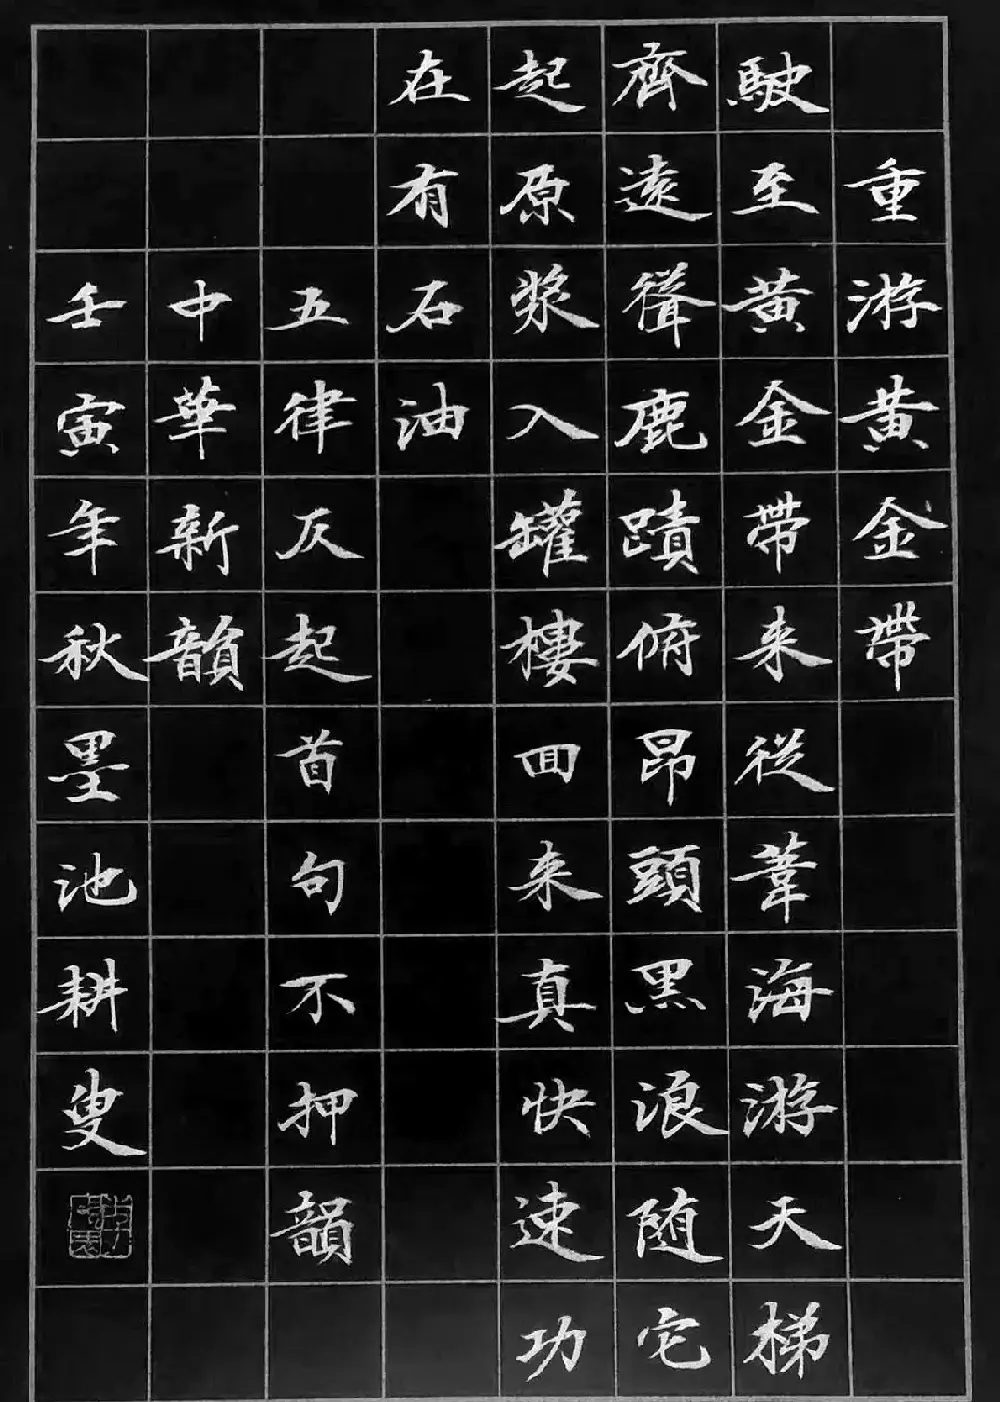 重游黄金帶
駛至黄金帶来從葦海游天梯
齊遠聳鹿蹟俯昂頭黑浪随它
起原漿入罐樓回来真快速功
在有石油
五律仄起首句不押韻
中華新韻
壬寅年秋墨池耕叟